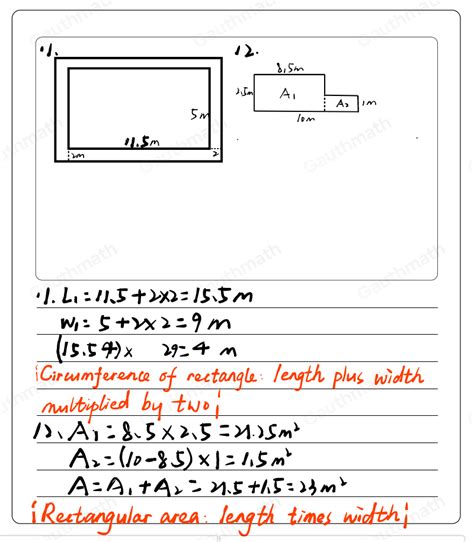 1.
12.
8.5m
5m
2.5m
A₁
A₂
1m
11.5m
10m
2m
2
1. L₁ = 11.5 + 2×2 = 15.5 m
W₁ = 5 + 2×2 = 9 m
(15.5 4)× 29 = 4 m
¡Circumference of rectangle: length plus width
multiplied by two¡
12. A₁ = 8.5 × 2.5 = 21.25m²
A₂ = (10-8.5) × 1 = 1.5m²
A = A₁ + A₂ = 21.5 + 1.5 = 23m²
¡Rectangular area: length times width¡
Gauthmath